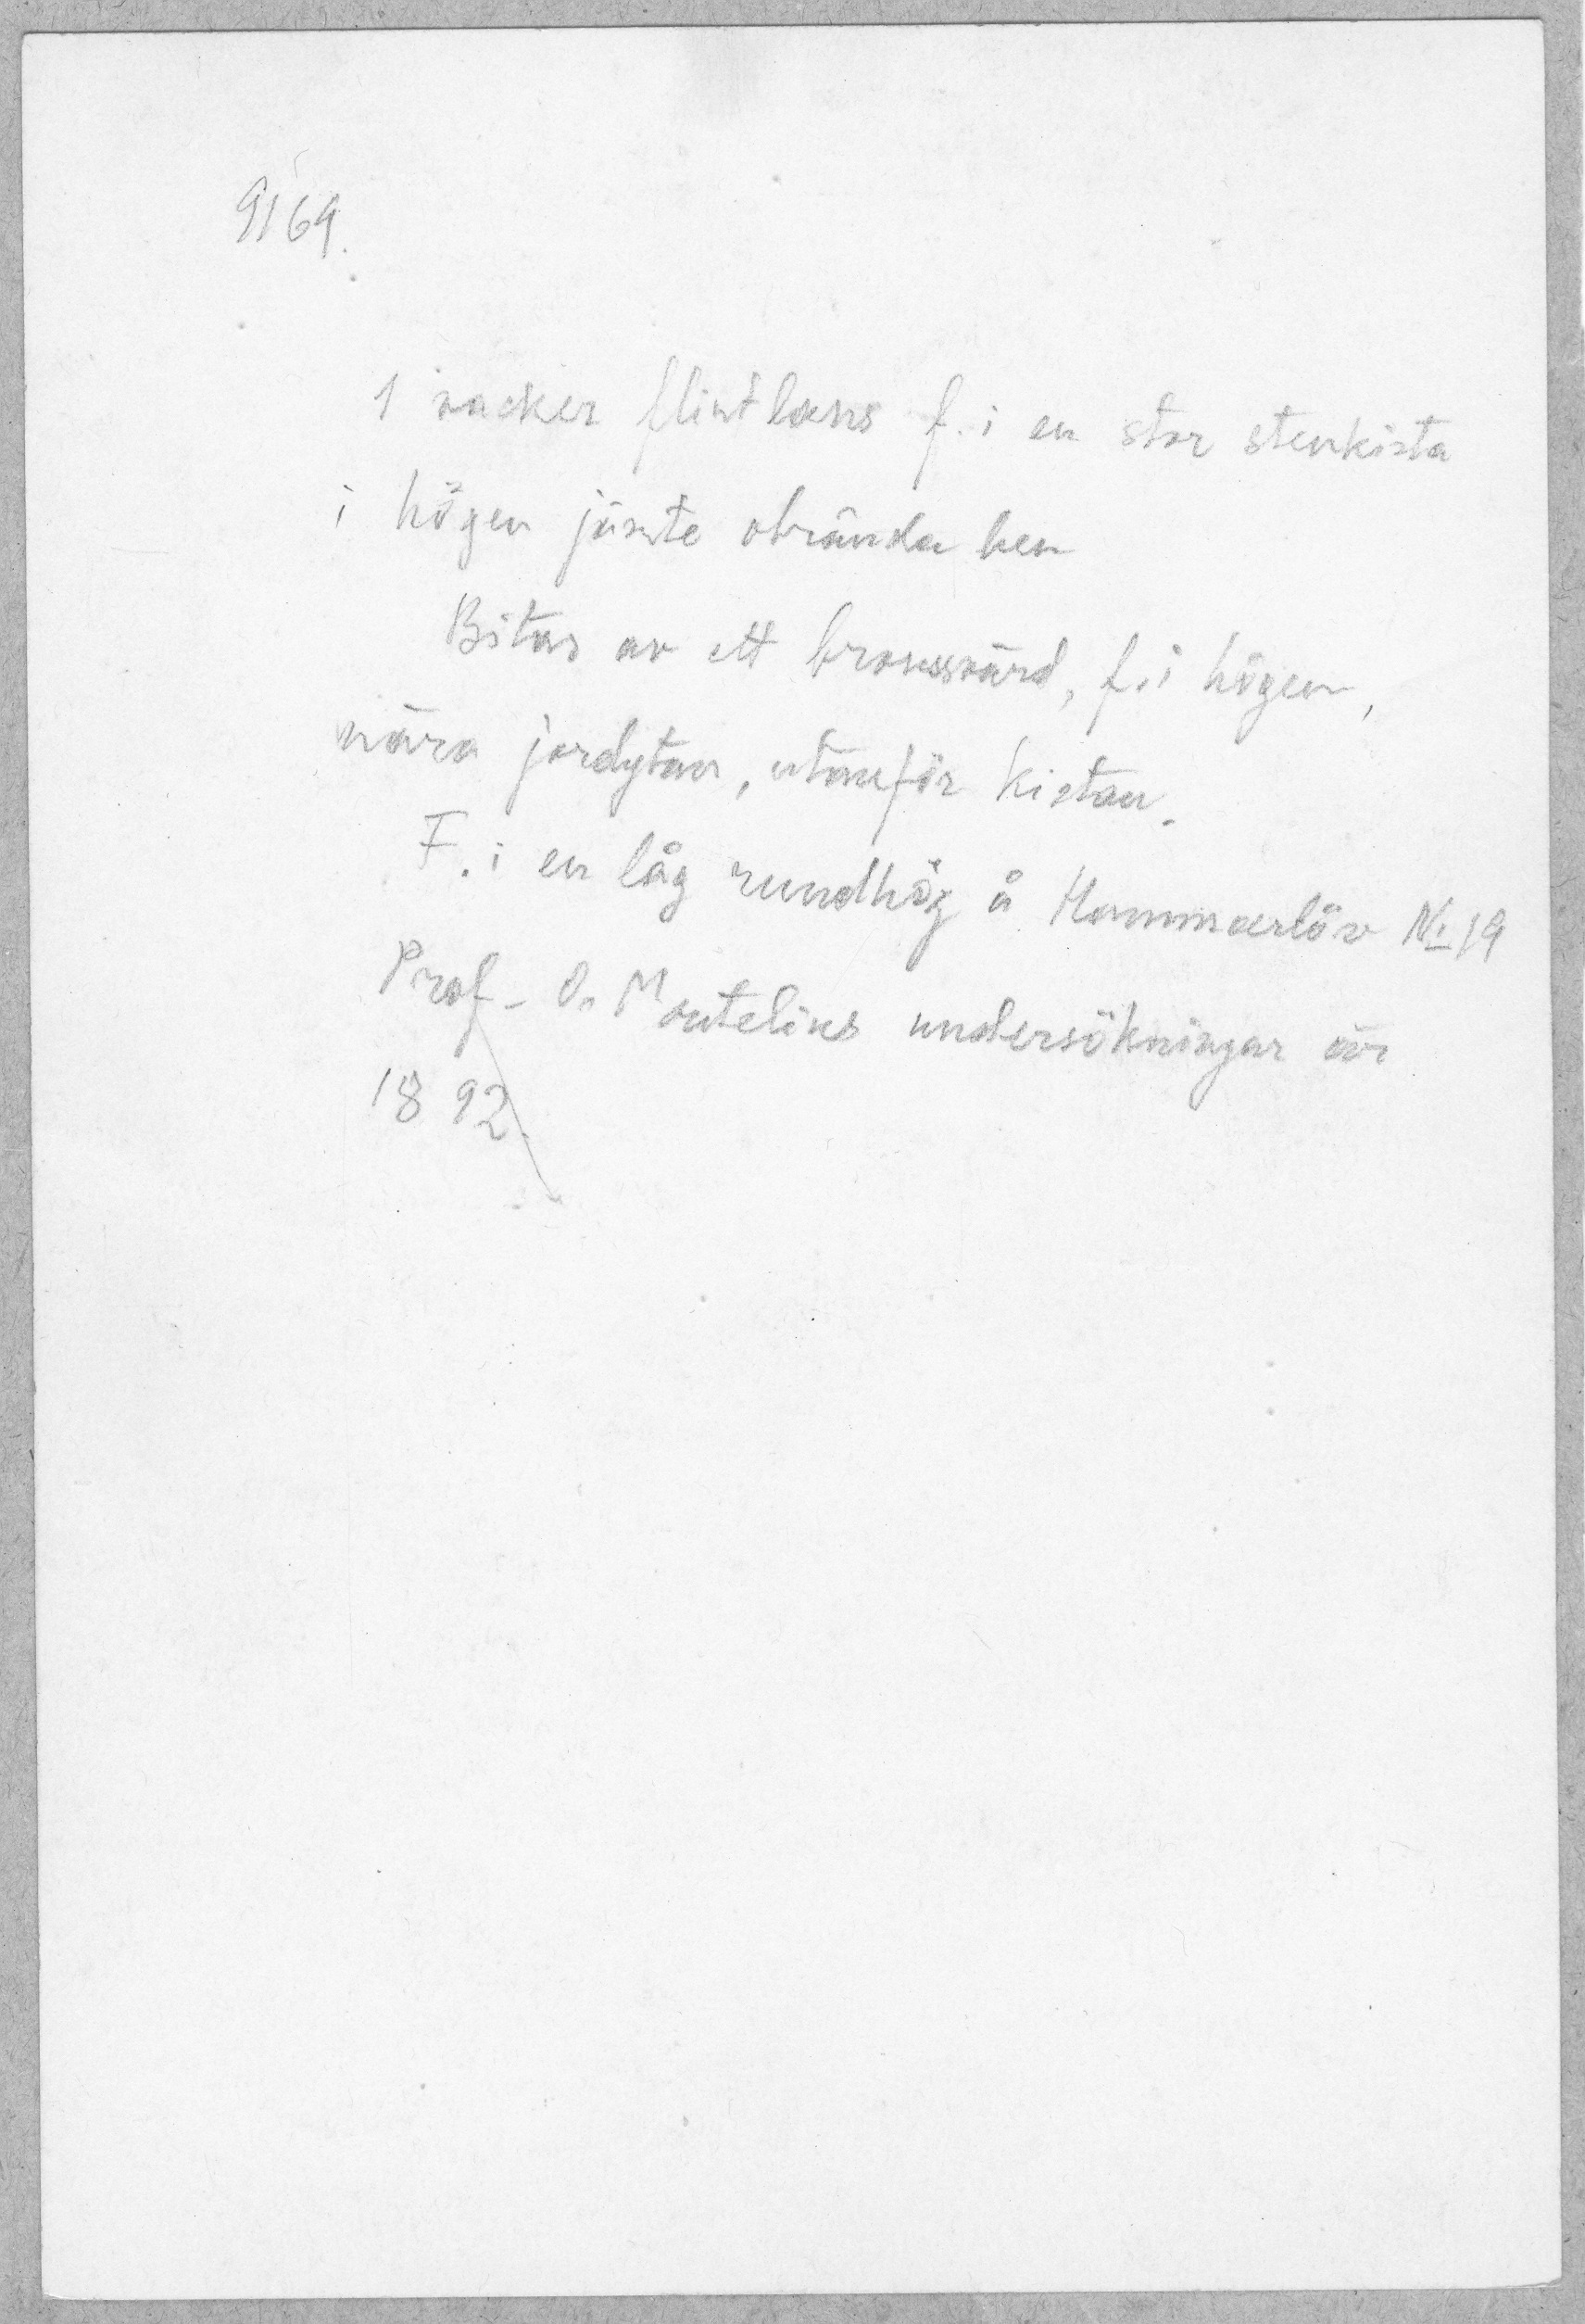 9169.
1 vacker flintlans f. i en stor stenkista
i högen jämte obrända ben
Bitar av ett bronssvärd, f. i högen,
nära jordytan, utanför kistan.
F. i en låg rundhög å Hammarlöv № 19
Prof. O. Montelius undersökningar år
1892.